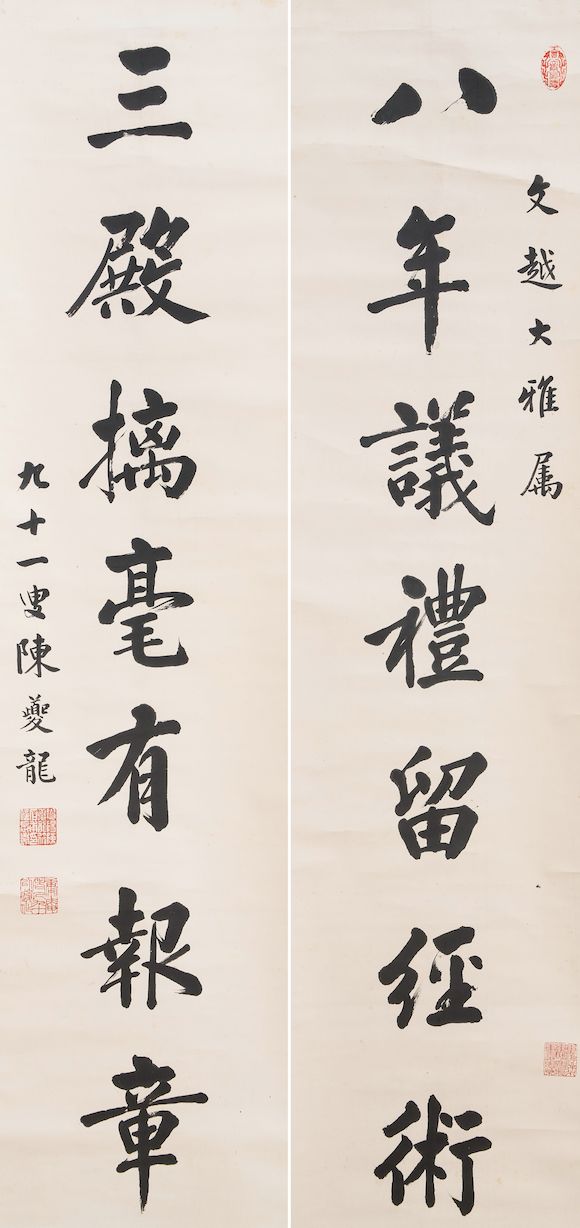 文越大雅属
八年議禮留經術
三殿摛毫有報章
九十一叟陳夔龍